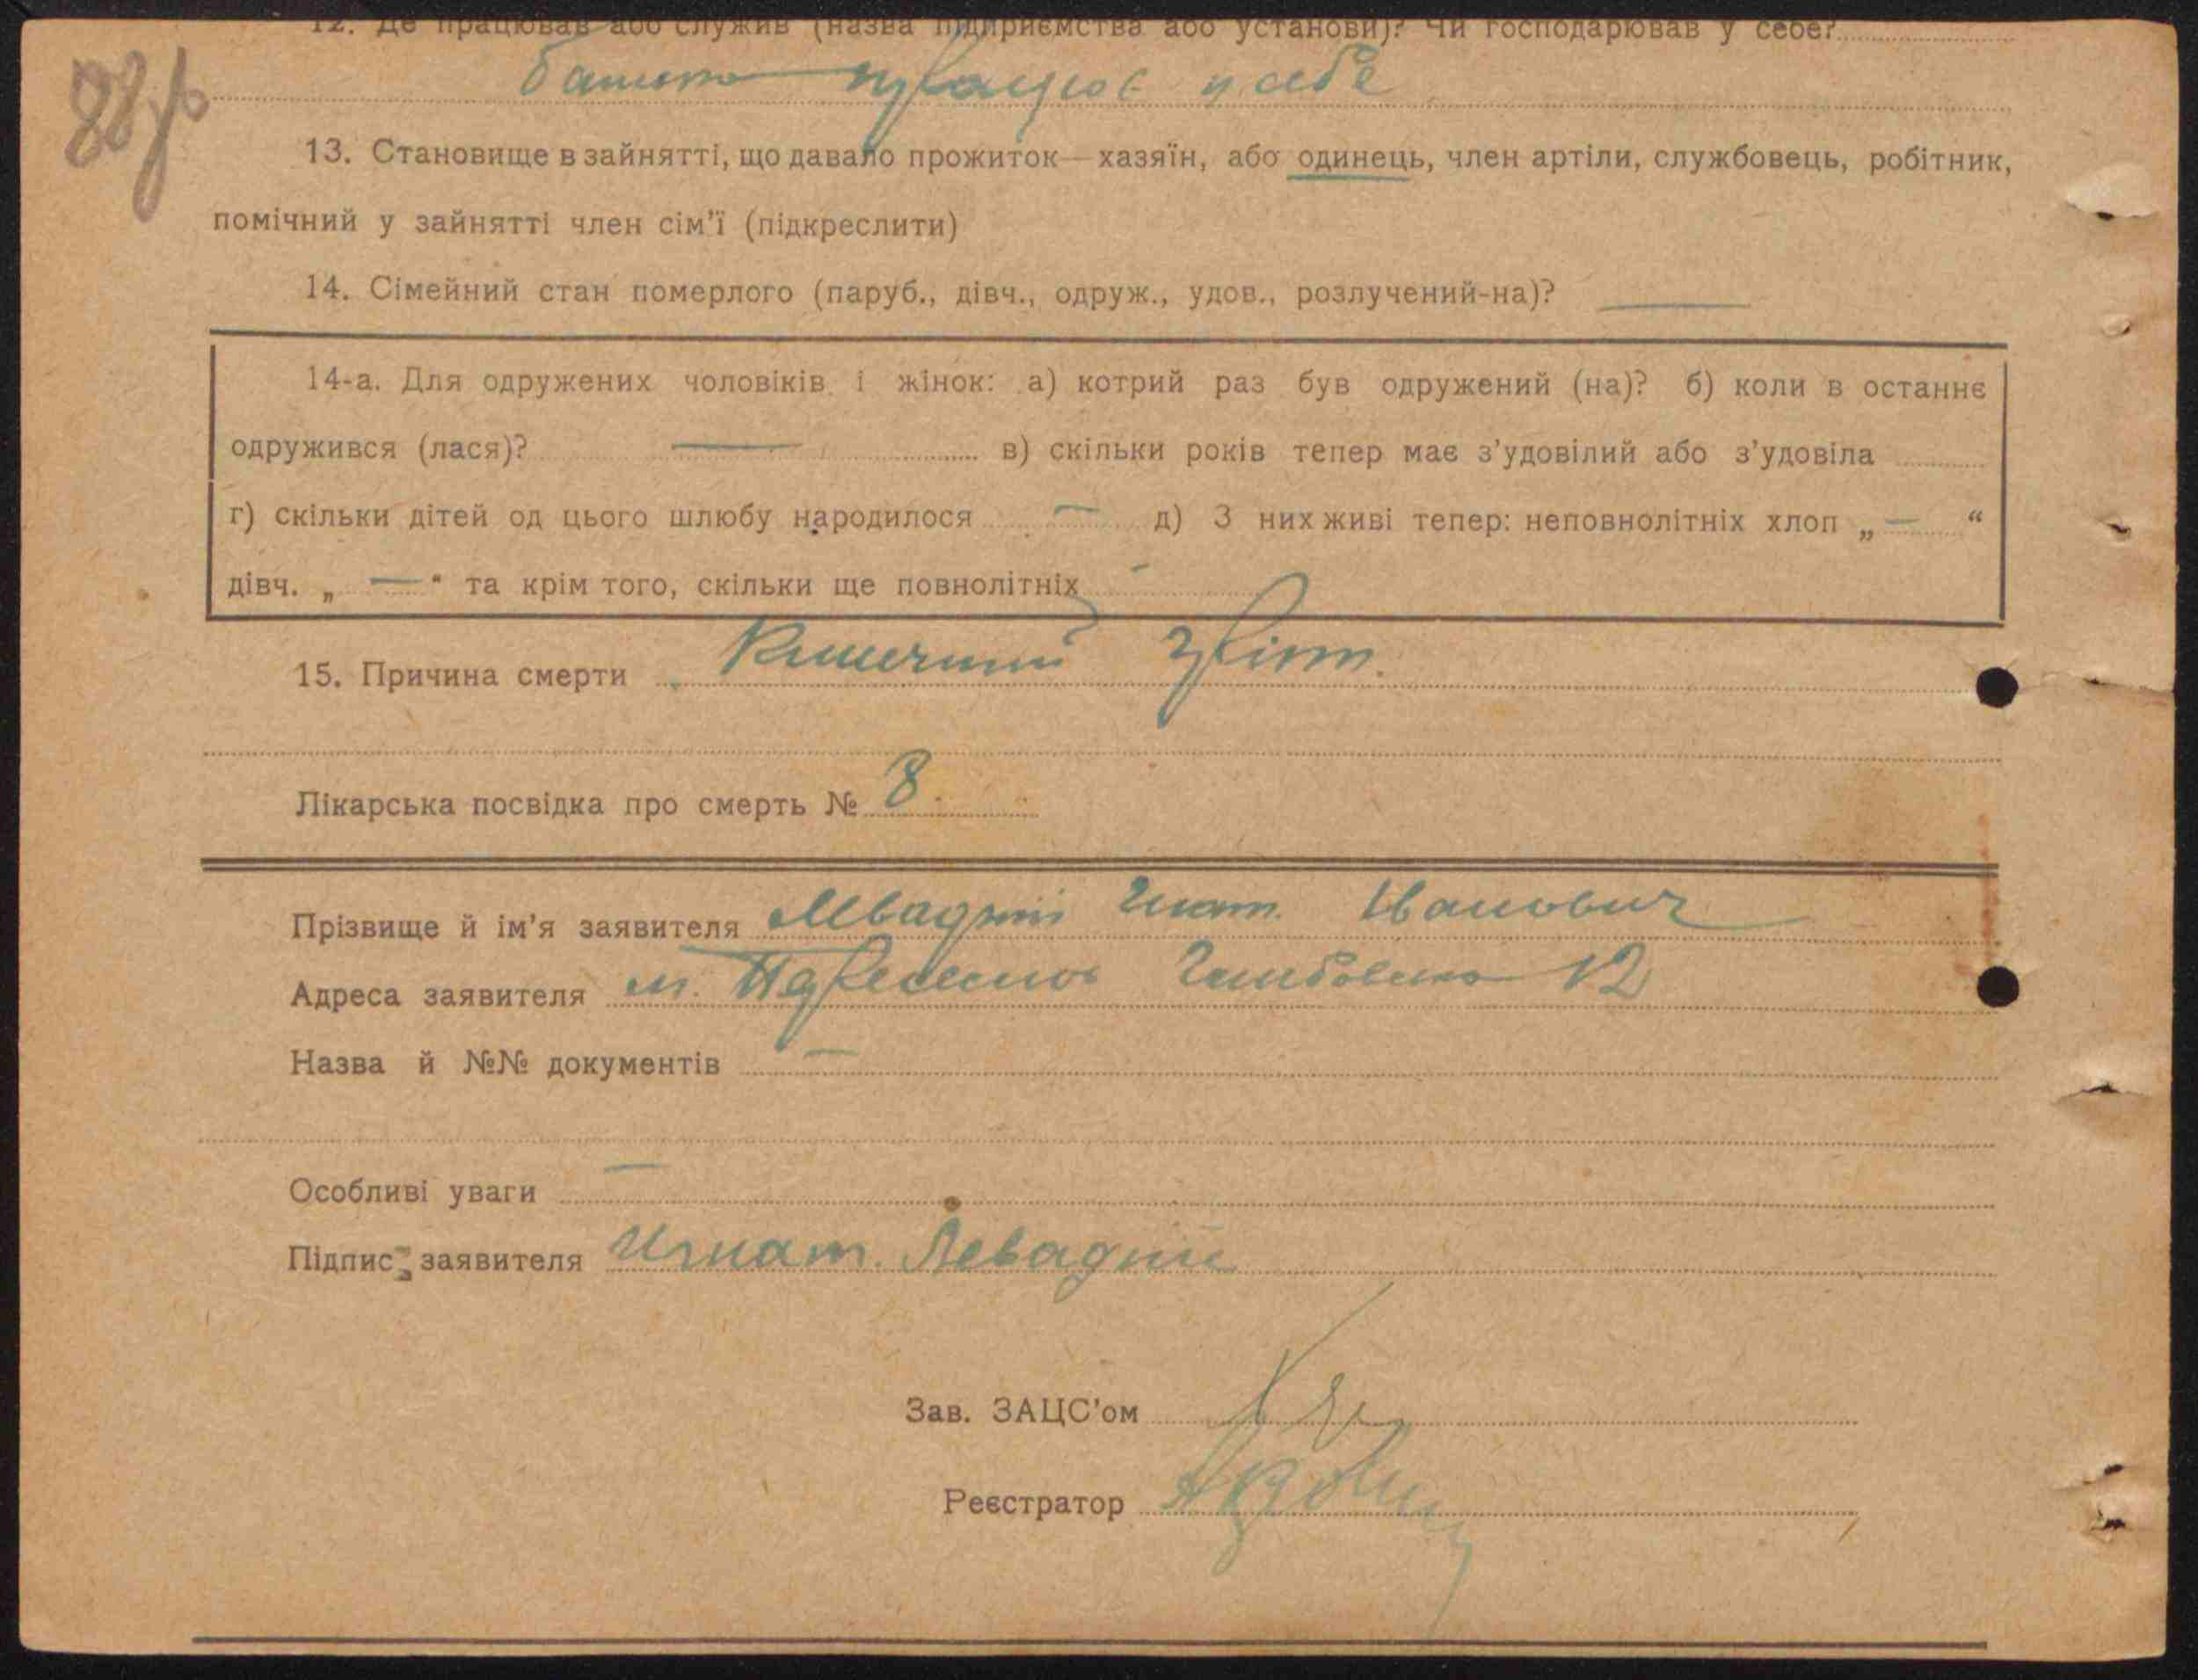 12. Де працював або служив (назва підприємства або установи)? Чи господарював у себе?
батько працює у себе
13. Становище в зайнятті, що давало прожиток — хазяїн, або одинець, член артіли, службовець, робітник,
помічний у зайнятті член сім'ї (підкреслити)
14. Сімейний стан померлого (паруб., дівч., одруж., удов., розлучений-на)? —
14-а. Для одружених чоловіків і жінок: а) котрий раз був одружений (на)? б) коли в останнє
одружився (лася)? — в) скільки років тепер має з'удовілий або з'удовіла
г) скільки дітей од цього шлюбу народилося — д) З них живі тепер: неповнолітніх хлоп „ — “
дівч. „ — “ та крім того, скільки ще повнолітніх -
15. Причина смерти Кишечний
Лікарська посвідка про смерть № 8.
Прізвище й ім'я заявителя Левадний Гнат. Иванович
Адреса заявителя м. 12
Назва й №№ документів —
Особливі уваги —
Підпис заявителя Игнат. Левадний
Зав. ЗАЦС'ом
Реєстратор